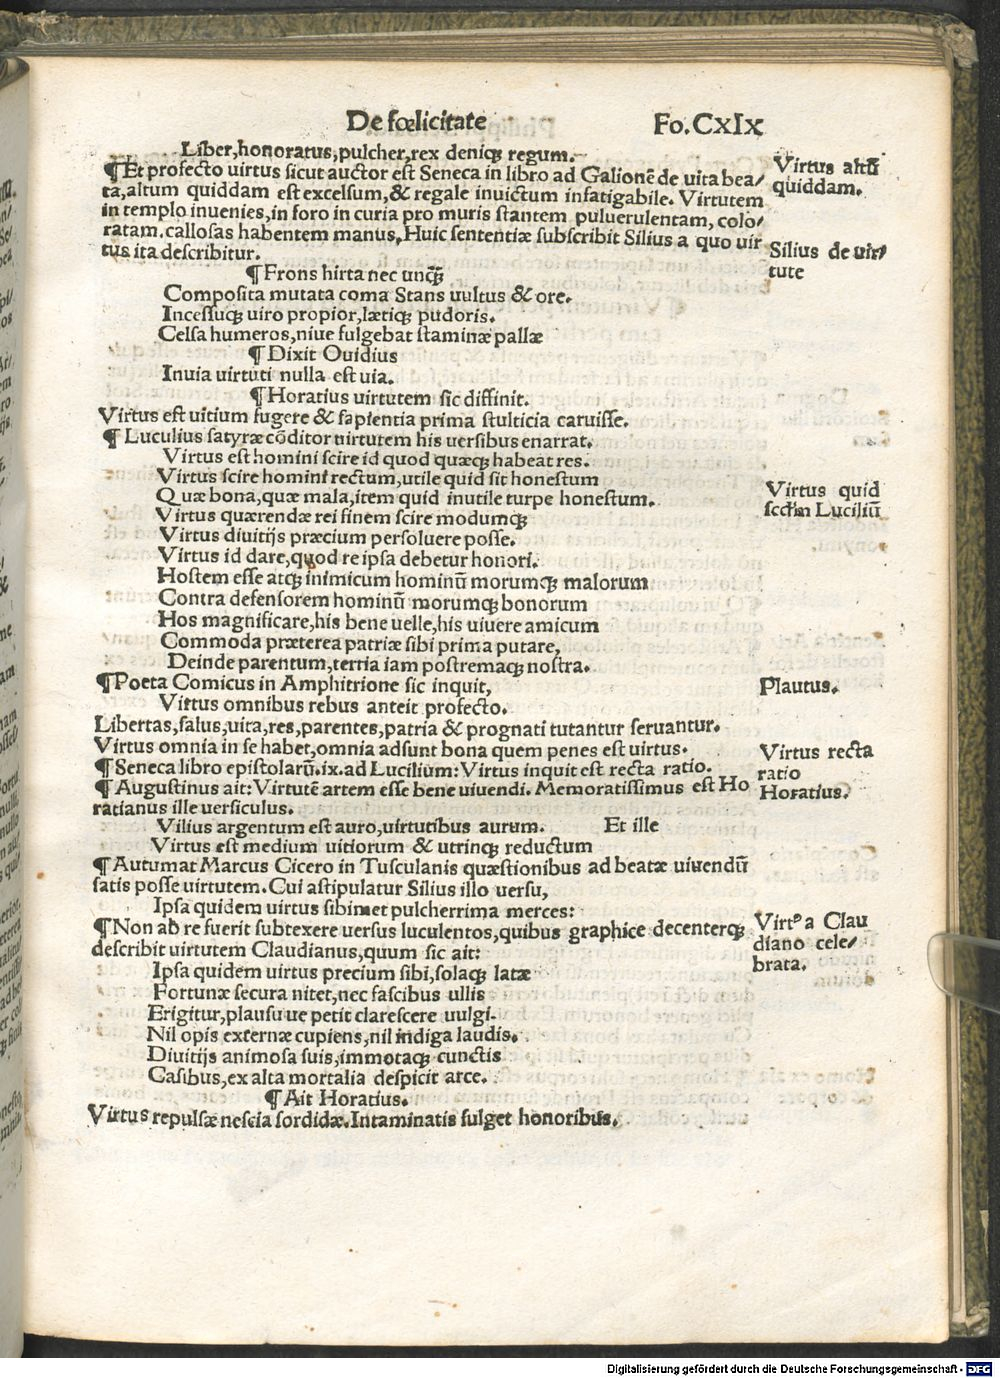 De fœlicitate Fo.CXIX
Liber,honoratus,pulcher,rex deniqꝫ regum.
¶Et profecto uirtus sicut auctor est Seneca in libro ad Galionē de uita bea/
ta,altum quiddam est excelsum,& regale inuictum infatigabile. Virtutem
in templo inuenies,in foro in curia pro muris stantem puluerulentam, colo/
ratam.callosas habentem manus,Huic sententiæ subscribit Silius a quo uir
tus ita describitur.
Virtus altū
quiddam.
Silius de uir/
tute
¶Frons hirta nec unq̃ꝫ
Composita mutata coma Stans uultus & ore.
Incessuqꝫ uiro propior,lætiqꝫ pudoris.
Celsa humeros,niue fulgebat staminæ pallæ
¶Dixit Ouidius
Inuia uirtuti nulla est uia.
¶Horatius uirtutem sic diffinit.
Virtus est uitium fugere & sapientia prima stulticia caruisse.
¶Luculius satyræ cōditor uirtutem his uersibus enarrat.
Virtus est homini scire id quod quæqꝫ habeat res.
Virtus scire homini rectum,utile quid sit honestum
Quæ bona,quæ mala,item quid inutile turpe honestum.
Virtus quærendæ rei finem scire modumqꝫ
Virtus quid
scđm Luciliū
Virtus diuitijs præcium persoluere posse.
Virtus id dare,quod re ipsa debetur honori.
Hostem esse atqꝫ inimicum hominū morumqꝫ malorum
Contra defensorem hominū morumqꝫ bonorum
Hos magnificare,his bene uelle,his uiuere amicum
Commoda præterea patriæ sibi prima putare,
Deinde parentum,tertia iam postremaqꝫ nostra.
¶Poeta Comicus in Amphitrione sic inquit,
Plautus.
Virtus omnibus rebus anteit profecto.
Libertas,salus,uita,res,parentes,patria & prognati tutantur seruantur.
Virtus omnia in se habet,omnia adsunt bona quem penes est uirtus.
¶Seneca libro epistolarū.ix.ad Lucilium:Virtus inquit est recta ratio.
¶Augustinus ait:Virtutē artem esse bene uiuendi. Memoratissimus est Ho
ratianus ille uersiculus.
Virtus recta
ratio
Horatius.
Vilius argentum est auro,uirtutibus aurum. Et ille
Virtus est medium uitiorum & utrinqꝫ reductum
¶Autumat Marcus Cicero in Tusculanis quæstionibus ad beatæ uiuendū
satis posse uirtutem.Cui astipulatur Silius illo uersu,
Ipsa quidem uirtus sibimet pulcherrima merces:
¶Non ab re fuerit subtexere uersus luculentos,quibus graphice decenterqꝫ
describit uirtutem Claudianus,quum sic ait:
Virtꝰ a Clau
diano cele/
brata.
Ipsa quidem uirtus precium sibi,solaqꝫ latæ
Fortunæ secura nitet,nec fascibus ullis
Erigitur,plausu ue petit clarescere uulgi.
Nil opis externæ cupiens,nil indiga laudis.
Diuitijs animosa suis,immotaqꝫ cunctis
Casibus,ex alta mortalia despicit arce.
¶Ait Horatius.
Virtus repulsæ nescia sordidæ.Intaminatis fulget honoribus.
Digitalisierung gefördert durch die Deutsche Forschungsgemeinschaft - DFG